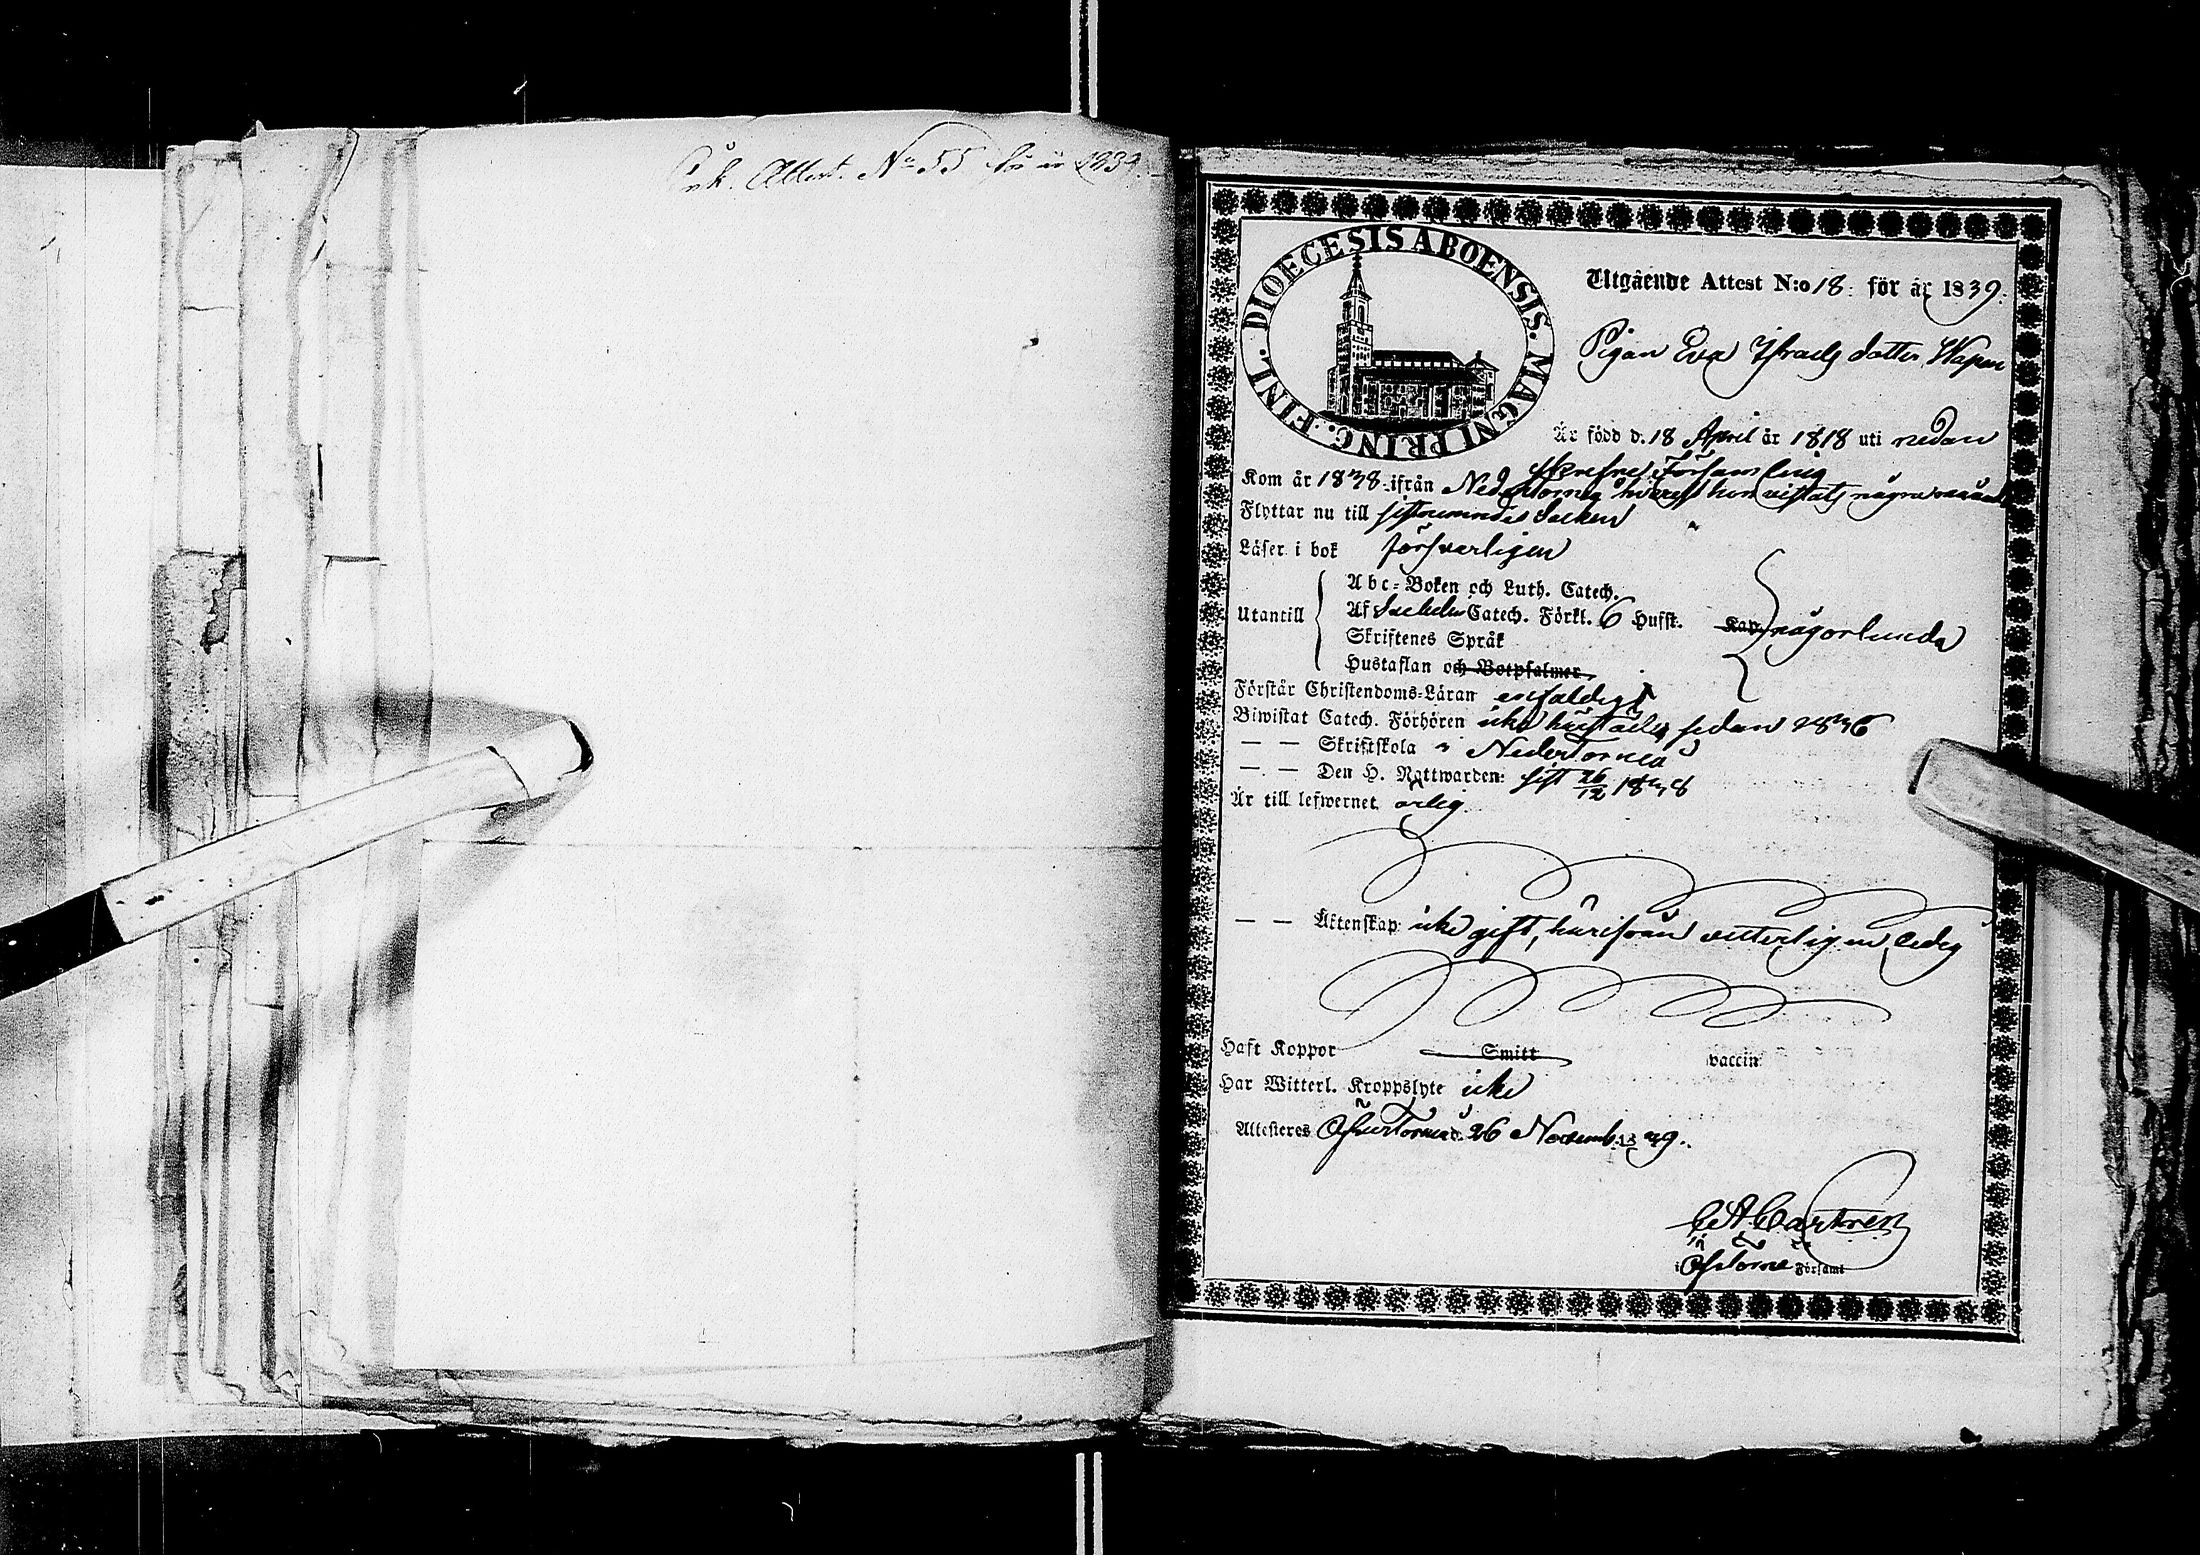 Ink. Attest. No 55 för år 1839.
DIOECESIS ABOENSIS. MAGNI PRINC. FINL.
Utgående Attest N:o 18. för år 1839.
Pigan Eva Israels dotter
Är född d. 18 April år 1818 uti nedan
skrefne Församling
Kom år 1838 ifrån NederTorneå hvarest hon vistats några
Flyttar nu till sistnemndes Socken
Läser i bok försvarligen
Abc-Boken och Luth. Catech.
Utantill Af Catech. Förkl. 6 Hufst. Kap. någorlunda
Skriftenes Språk
Hustaflan och Botpsalmer
Förstår Christendoms-Läran enfaldigt
Biwistat Catech. Förhören icke härstädes sedan 1836
— — Skriftskola i NederTorneå
— — Den H. Nattwarden: sist 26/12 1838
Är till lefwernet ärlig
— — Äktenskap: icke gift, härifrån vetterligen ledig
Haft Koppor Smitt vaccin
Har Witterl. Kroppslyte icke
Attesteras ÖfverTorneå d. 26 Novemb. 1839.
Castren
i ÖfTorne Församl